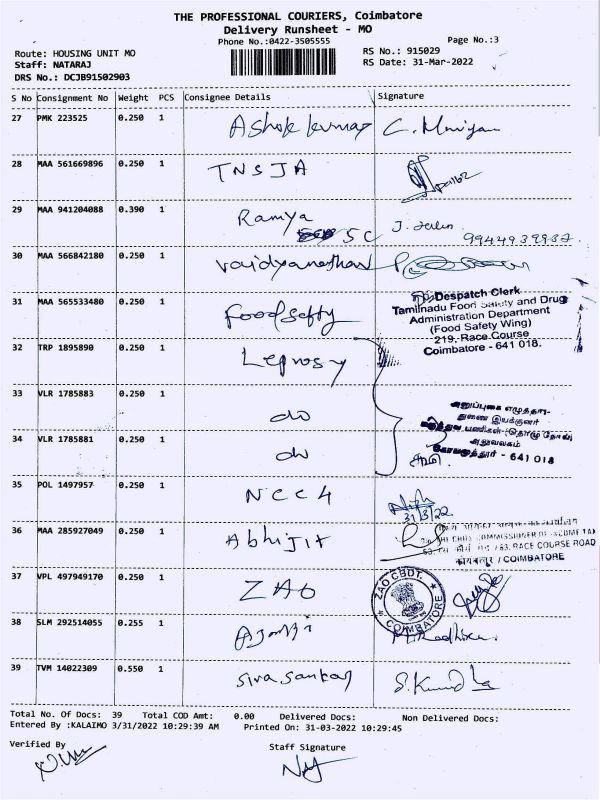 THE PROFESSIONAL COURIERS, Coimbatore
Delivery Runsheet - MO
Phone No.:0422-3505555
Page No.:3
Route: HOUSING UNIT MO
RS No.: 915029
Staff: NATARAJ
RS Date: 31-Mar-2022
DRS No.: DCJB91502903
S No Consignment No Weight PCS Consignee Details Signature
27 PMK 223525 0.250 1 Ashok kumar
28 MAA 561669896 0.250 1 TNSJA
29 MAA 941204088 0.390 1 Ramya
SC
30 MAA 566842180 0.250 1 Vaidyanathan
31 MAA 565533480 0.250 1 Food safty
Despatch Clerk
Tamilnadu Food Safety and Drug
Administration Department
(Food Safety Wing)
219, Race Course
Coimbatore - 641 018.
32 TRP 1895890 0.250 1 Leprosy
33 VLR 1785883 0.250 1 do
34 VLR 1785881 0.250 1 do
துணை இயக்குனர்
அலுவலகம்
கோயமுத்தூர் - 641 018
35 POL 1497957 0.250 1 NCC4
31/3/22
36 MAA 285927049 0.250 1 Abhijit
63, RACE COURSE ROAD
कोयंबत्तूर / COIMBATORE
37 VPL 497949170 0.250 1 ZAO
ZAO CBDT.
COIMBATORE
38 SLM 292514055 0.255 1
39 TVM 14022309 0.550 1 Siva Sankar
Total No. Of Docs: 39 Total COD Amt: 0.00 Delivered Docs: Non Delivered Docs:
Entered By :KALAIMO 3/31/2022 10:29:39 AM Printed On: 31-03-2022 10:29:45
Verified By
Staff Signature